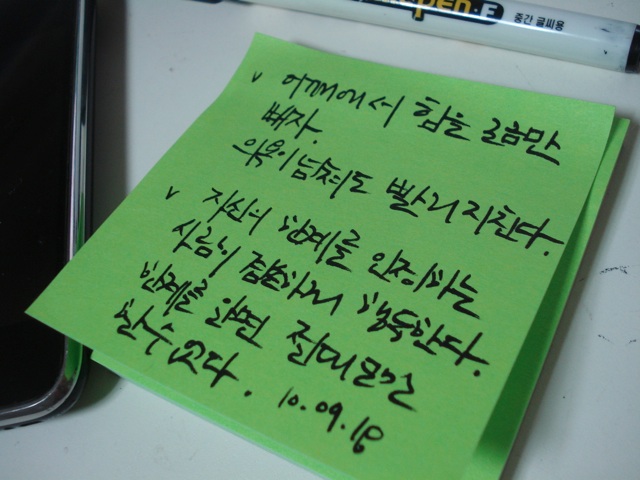 pen·F
중간 글씨용
v 어깨에서 힘을 조금만
빼자.
의욕이 넘쳐도 빨리 지친다.
v 자신의 한계를 인정하는
사람이 겸손하며 행동한다.
한계를 알면 절대
할 수 있다. 10.09.18